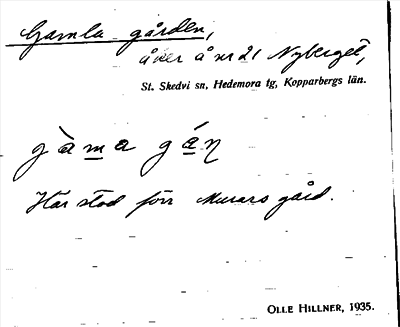 Gamla gården,
åker å nr 21 Nyberget,
St. Skedvi sn, Hedemora tg, Kopparbergs län.
gàma gáŋ
Här stod förr Murars gård.
OLLE HILLNER, 1935.